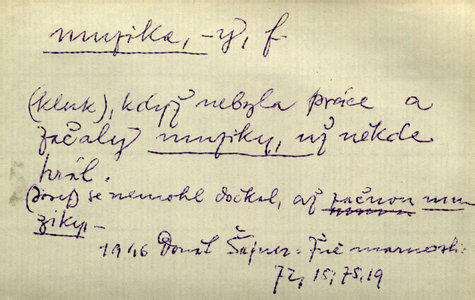 muzika, -y, f.
(kluk), když nebyla práce a
začaly muziky, už někde
hrál.
(Josef) se nemohl dočkat, až začnou mu-
ziky, -
1946 Donát Šajner:
72, 15; 75, 19